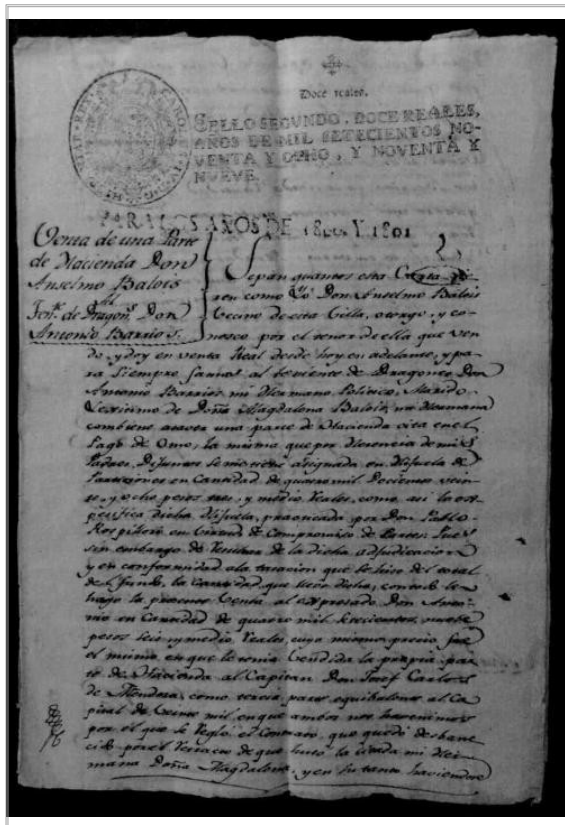 Doce reales.
SELLO SEGVNDO, DOCE REALES,
AÑOS DE MIL SETECIENTOS NO-
VENTA Y OCHO, Y NOVENTA Y
NUEVE.
PARA LOS AÑOS DE 1800 Y 1801
Venta de una Parte
de Hacienda Don
Anselmo Balois
al
Ten.te de Dragon.s Don
Antonio Barrios.
Sepan quantos esta Carta
ren como Yo Don Anselmo Balois
Vecino de esta Villa, otorgo, y co-
nosco por el tenor de ella que ven
do, y doy en venta Real desde hoy en adelante, y pa-
ra siempre jamas al teniente de Dragones Don
Antonio Barrios, mi Hermano Politico, Marido
Lexitimo de Doña Magdalena Balois, mi Hermana
combiene asaver una parte de Hacienda cita en el
Pago de Omo, la misma que por Herencia de mis
Padres Difuntos se me tiene asignada en Hijuela de
Particiones en Cantidad de quatro mil Docientos vein-
te, y ocho pesos tres, y medio Reales, como asi lo es-
pecifica dicha Hijuela, practicada por Don Pablo
en Virtud de Compromiso de Partes. Pues
sin embargo de de la dicha adjudicacion
y en conformidad a la tasacion que se hiso del total
del fundo, la Cantidad que dicha; le
hago la presente Venta al expresado Don Anto-
nio en Cantidad de quatro mil setecientos, nueve
pesos seis y medio Reales, cuyo mismo precio fue
el mismo, en que le tenia Vendida la propia par-
te de Hacienda al Capitan Don Josef Carlos
de Mendosa, como tercia parte equibalente al Ca-
pital de Veinte mil, en que ambos nos havenimos
por el que se reglo el Contrato, que quedó desbane-
cido por el Retracto de que husó la citada mi Her-
mana Doña Magdalena, y en su tanto haviendose